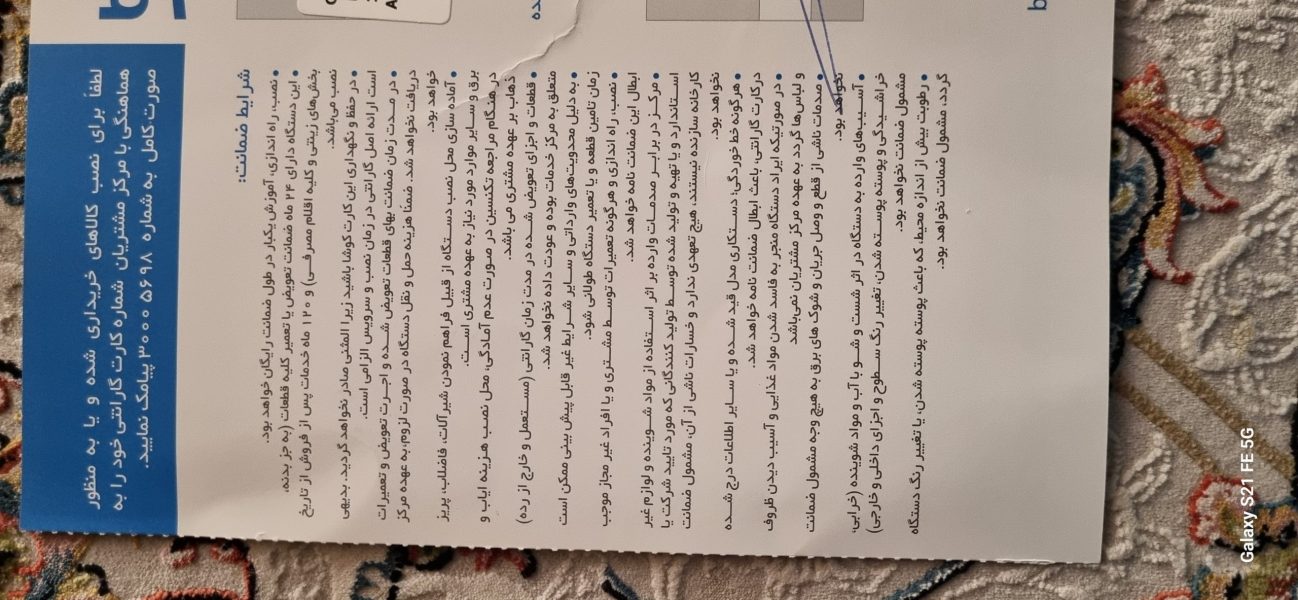 لطفاً برای نصب کالاهای خریداری شده و یا به منظور
هماهنگی با مرکز مشتریان شماره کارت گارانتی خود را به
صورت کامل به شماره ۳۰۰۰۵۶۹۸ پیامک نمایید.
شرایط ضمانت:
• نصب، راه اندازی، آموزش یکبار در طول ضمانت رایگان خواهد بود.
• این دستگاه دارای ۲۴ ماه ضمانت تعویض یا تعمیر کلیه قطعات (به جز بدنه،
بخش‌های زینتی و کلیه اقلام مصرفی) و ۱۲۰ ماه خدمات پس از فروش از تاریخ
نصب می‌باشد.
• در حفظ و نگهداری این کارت کوشا باشید زیرا المثنی صادر نخواهد گردید. بدیهی
است ارائه اصل گارانتی در زمان نصب و سرویس الزامی است.
• در مدت زمان ضمانت بهای قطعات تعویض شده و اجرت تعویض و تعمیرات
دریافت نخواهد شد. ضمناً هزینه حمل و نقل دستگاه در صورت لزوم، به عهده مرکز
خواهد بود.
• آماده سازی محل نصب دستگاه از قبیل فراهم نمودن شیرآلات، فاضلاب، پریز
برق و سایر موارد مورد نیاز به عهده مشتری است.
در هنگام مراجعه تکنسین در صورت عدم آمادگی، محل نصب هزینه ایاب و
ذهاب بر عهده مشتری می باشد.
• قطعات و اجزای تعویض شده در مدت زمان گارانتی (مستعمل و خارج از رده)
متعلق به مرکز خدمات بوده و عودت داده نخواهد شد.
• به دلیل محدویت‌های وارداتی و سایر شرایط غیر قابل پیش بینی ممکن است
زمان تامین قطعه و یا تعمیر دستگاه طولانی شود.
• نصب، راه اندازی و هرگونه تعمیرات توسط مشتری و یا افراد غیر مجاز موجب
ابطال این ضمانت نامه خواهد شد.
• مرکز در برابر صدمات وارده بر اثر استفاده از مواد شوینده و لوازم غیر
استاندارد و یا تهیه و تولید شده توسط تولید کنندگانی که مورد تایید شرکت یا
کارخانه سازنده نیستند، هیچ تعهدی ندارد و خسارات ناشی از آن، مشمول ضمانت
نخواهد بود.
• هرگونه خط خوردگی؛ دستکاری مدل قید شده و یا سایر اطلاعات درج شده
در کارت گارانتی، باعث ابطال ضمانت نامه خواهد شد.
• در صورتیکه ایراد دستگاه منجر به فاسد شدن مواد غذایی و آسیب دیدن ظروف
و لباس‌ها گردد به عهده مرکز مشتریان نمی‌باشد
• صدمات ناشی از قطع و وصل جریان و شوک های برق به هیچ وجه مشمول ضمانت
نخواهد بود.
• آسیب‌های وارده به دستگاه در اثر شست و شو با آب و مواد شوینده (خرابی،
خراشیدگی و پوسته پوسته شدن، تغییر رنگ سطوح و اجزای داخلی و خارجی)
مشمول ضمانت نخواهد بود.
• رطوبت بیش از اندازه محیط، که باعث پوسته پوسته شدن، یا تغییر رنگ دستگاه
گردد، مشمول ضمانت نخواهد بود.
Galaxy S21 FE 5G